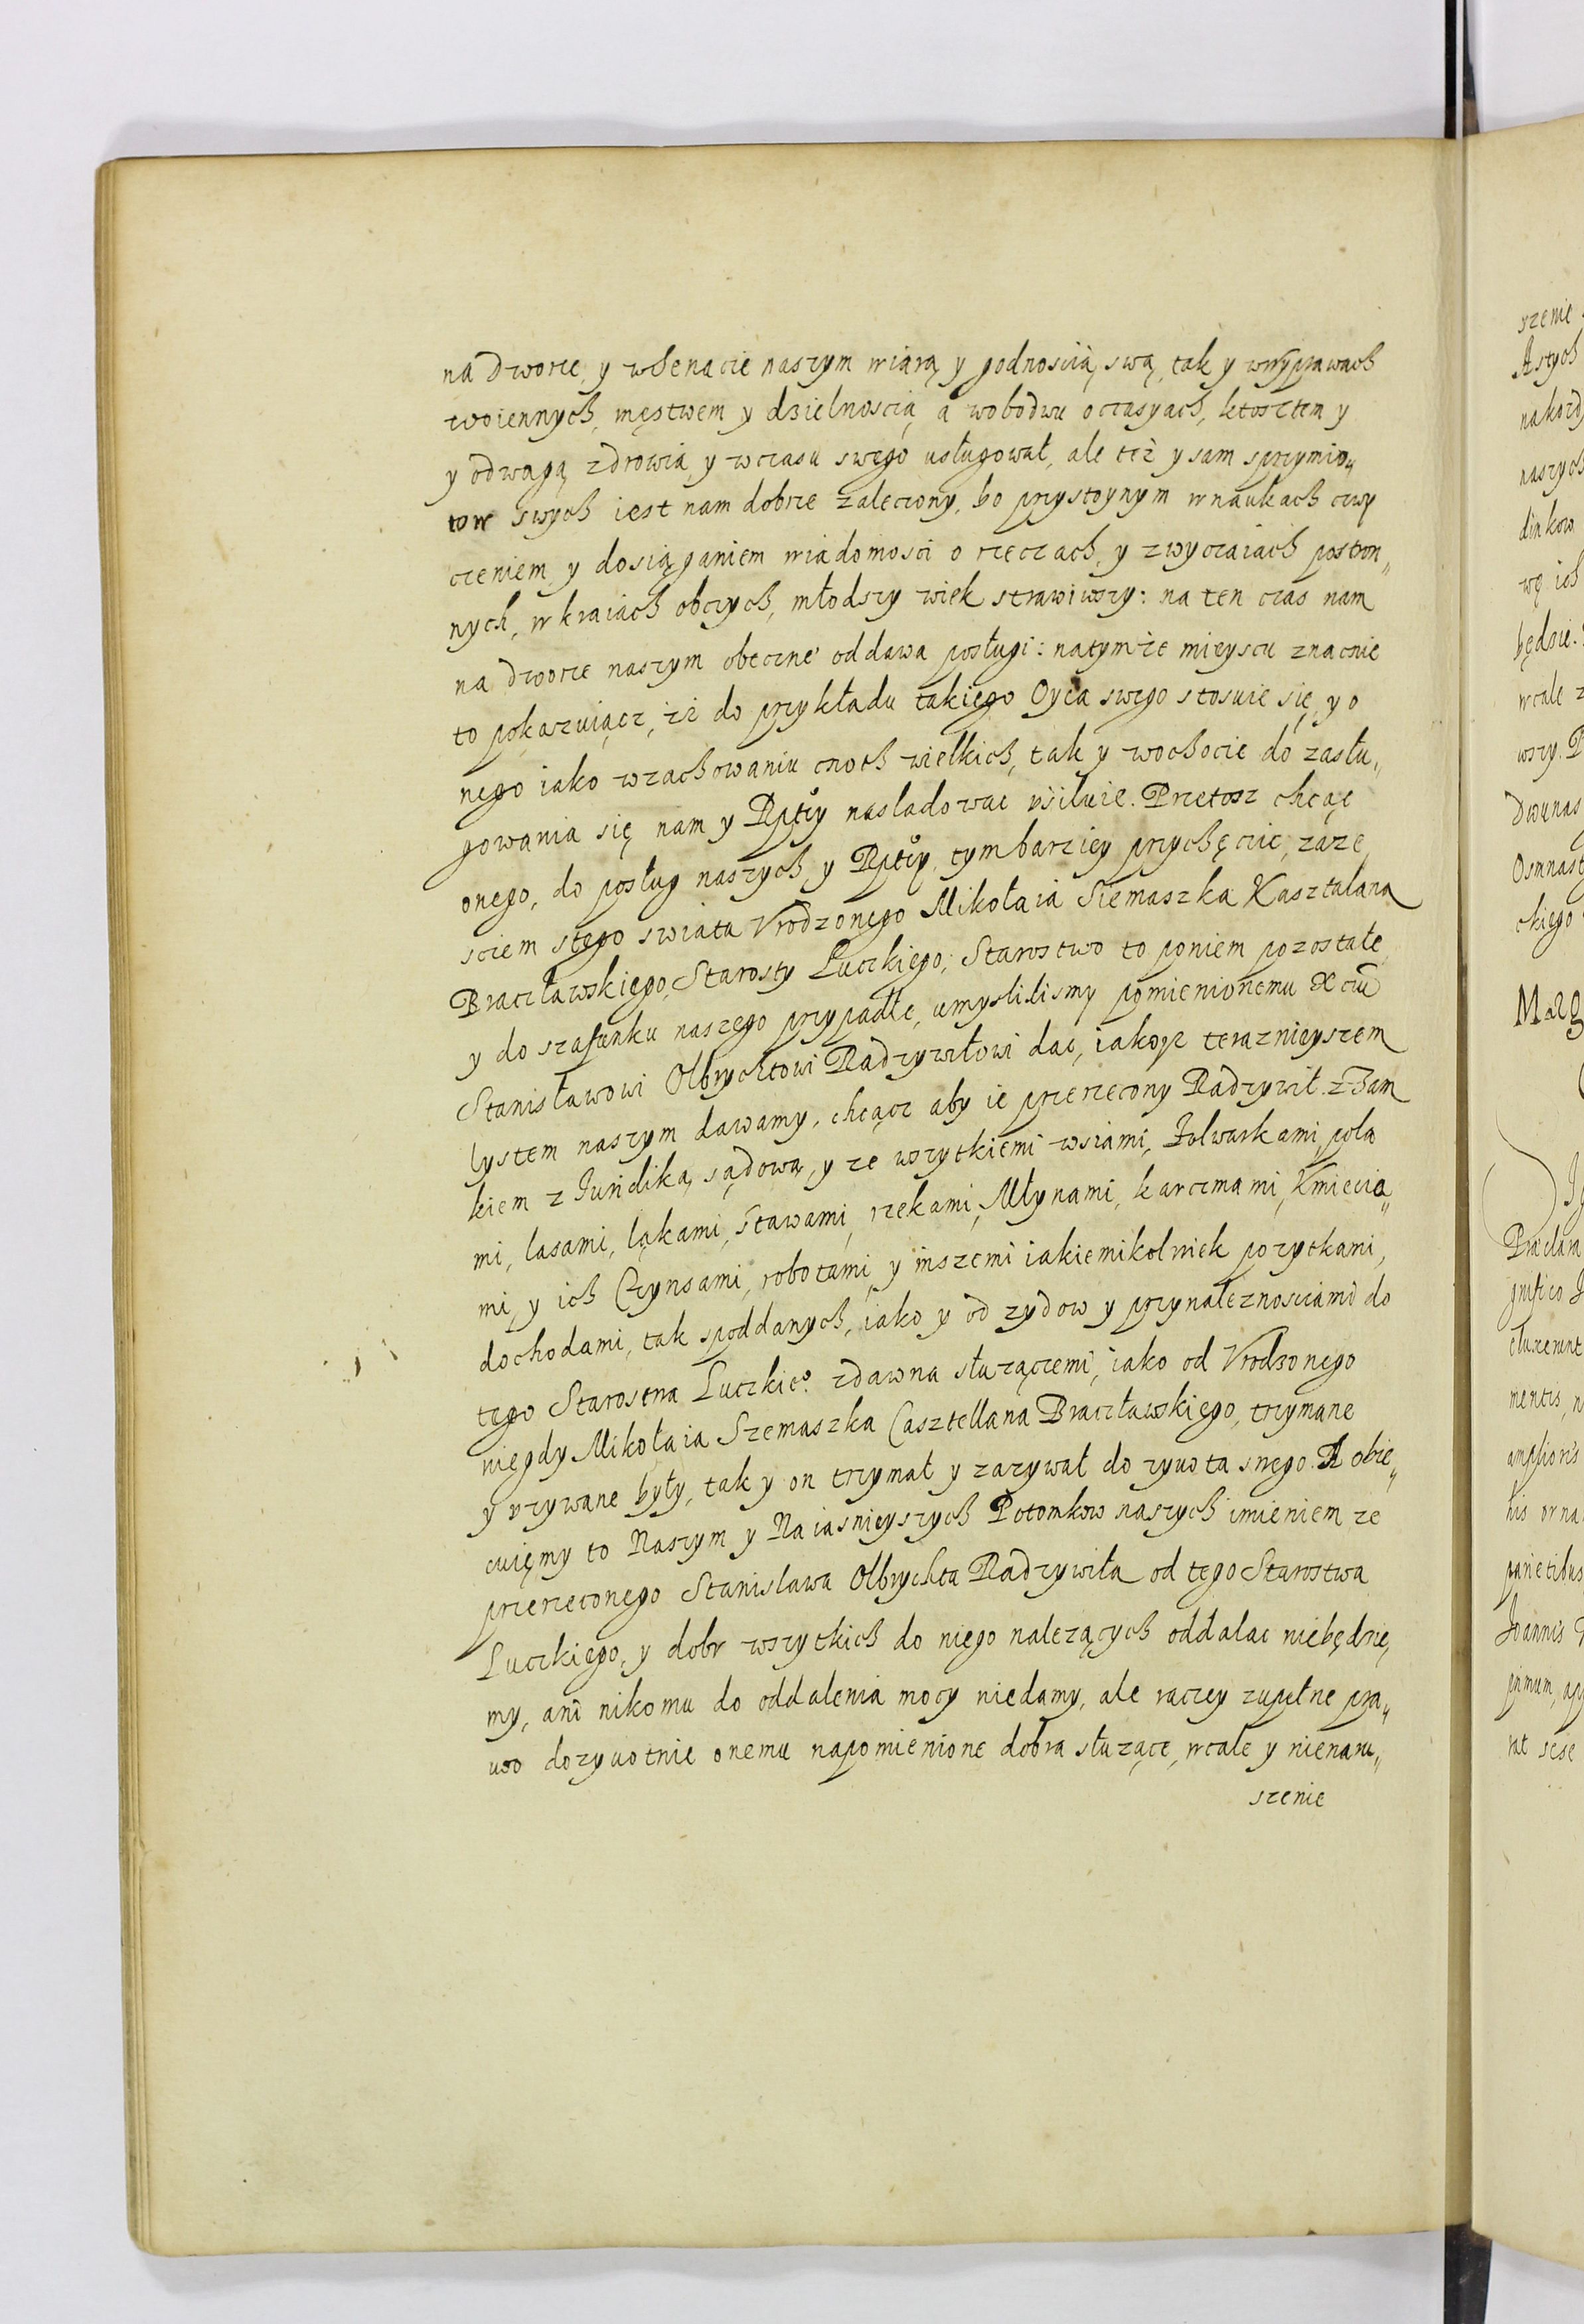 na dworze, y wSenacie naszym wiarą y godnoscią swą, tak y wwyprawach
woiennych, męstwem y dzielnoscią, a wobodwu occasyach, kosztem y
y odwagą zdrowia, y wczasu swego usługował, ale też y sam sprzymio„
tow swych iest nam dobrze zalecony, bo przystoynym wnaukach cwy
czeniem, y dosiąganiem wiadomosci o rzeczach, y zwyczaiach postron„
nych, wkraiach obczych, młodszy wiek strawiwszy: na ten czas nam
na dworze naszym obeczne oddawa posługi: natymże mieyscu znacznie
to pokazuiącz, iż do przykładu takiego Oyca swego stosuie się, y o
nego iako wzachowaniu cnoth wielkich, tak y wochocie do zasłu„
gowania się nam y Rptcy nasladowac usiłuie. Przetosz chcąc
onego, do posług naszych, y Rptcy, tymbarziey przychęcic, zaze
sciem stego swiata Vrodzonego Mikołaia Siemaszka Kasztalana
Braczławskiego, Starosty Łuczkiego, Starostwo to poniem pozostałe
y do szafunku naszego przypadłe, umyslilismy pomienionemu Xciu
Stanisławowi Olbrychtowi Radzywiłowi dac, iakosz teraznieyszem
lystem naszym dawamy, chcącz aby ie przerzeczony Radzywił z Zam
kiem z Juridiką, sądową, y ze wszytkiemi wsiami, Folwarkami, pola
mi, lasami, ląkami, stawami, rzekami, Młynami, karczmami, Kmiecia„
mi, y ich Czynsami, robotami, y inszemi iakiemikolwiek pozytkami,
dochodami, tak spoddanych, iako y od zydow y przynaleznosciami do
tego Starostwa Łuczkieo. zdawna służączemi, iako od Vrodzonego
niegdy Mikołaia Szemaszka Casztellana Braczławskiego, trzymane
y uzywane były, tak y on trzymał y zazywał do zywota swego. A obie„
cuięmy to Naszym y Naiasnieyszych Potomkow naszych imieniem ze
przerzeconego Stanislawa Olbrychta Radzywiła od tego Starostwa
Łuczkiego, y dobr wszytkich do niego nalezących oddalac niebędzie„
my, ani nikomu do oddalenia mocy niedamy, ale raczey zupełne pra„
wo dozywotnie onemu napomienione dobra służące, wcale y nienaru„
szenie
szenie
nakozd
naszych
będzie.
wcale z
wszy. P
Dwunas
Osmnast
ckiego
Marg
Præclara
mentis, n
Joannis
primum, ap